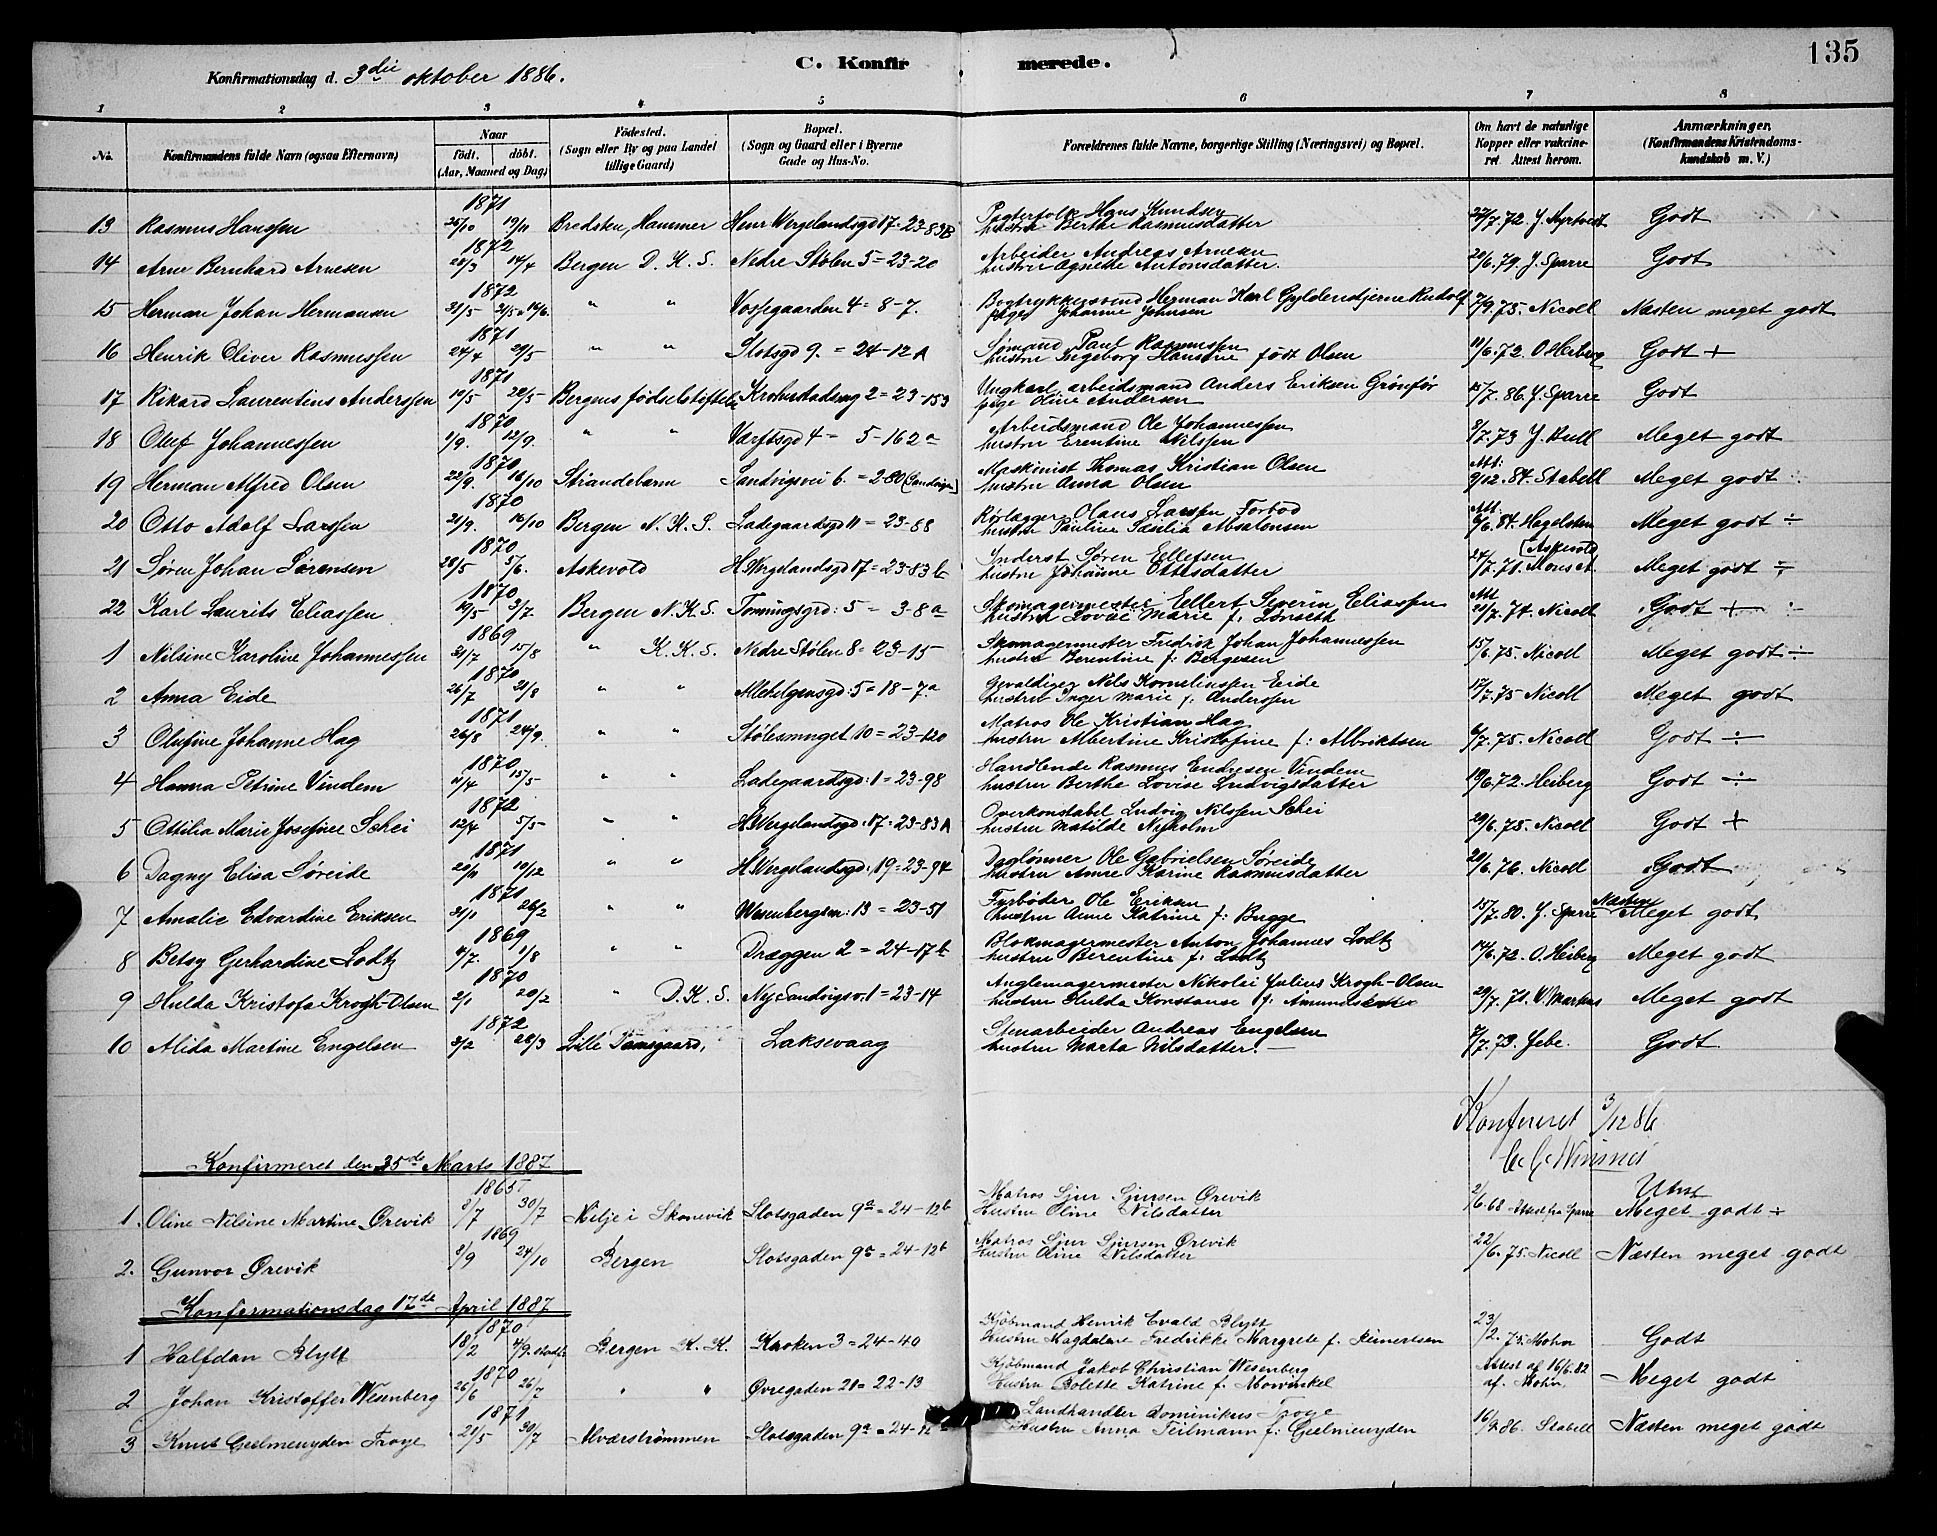 135
Konfirmationsdag d. 3die oktober 1886.
C. Konfirmerede.
1 2 3 4 5 6 7 8
No. Konfirmandens fulde Navn (ogsaa Efternavn) Naar født. døbt. (Aar, Maaned og Dag) Fødested. (Sogn eller By og paa Landet tillige Gaard) Bopæl. (Sogn og Gaard eller i Byerne Gade og Hus-No. Forældrenes fulde Navne, borgerlige Stilling (Næringsvei) og Bopæl. Om havt de naturlige Kopper eller vakcineret. Attest herom. Anmærkninger. (Konfirmandens Kristendomskundskab m. V.)
1871
13 Rasmus Hanssen 25/10 19/11 Bredsten, Hammer Henr Wergelandsgd 17=23-83B Pagterfolk Hans Knudsen hustru Berthe Rasmusdatter 27/7.72 J. Myrtvedt Godt
1872
14 Arne Bernhard Arnesen 20/3 14/4 Bergen D.K.S. Nedre Stølen 5=23-20 Arbeider Andreas Arnesen hustru Agnethe Antonsdatter. 20/6.79 J. Sparre Godt
1872
15 Herman Johan Hermansen 31/5 2/5=16/6. " " Vossegaarden 4=8-7. Bogtrykkersvend Herman Karl Gyldenstjerne Rudolf pige Johanne Johnsen 7/9.75. Nicoll Næsten meget godt
1871
16 Henrik Oliver Rasmussen 24/4 29/5 " " Slotsgd 9. = 24-12A Sømand Paul Rasmussen hustru Ingeborg Hansine født Olsen 11/6.72. O Heiberg Godt +
1871
17 Rikard Laurentius Anderssen 10/5 28/5 Bergens fødselstiftelse Krohnstadsmg 2=23-153 Ungkarl, arbeidsmand Anders Eriksen Grönför pige Oline Andersen 15/7.86. J. Sparre Godt
1870
18 Oluf Johannessen 1/9. 12/9. " " Værftsgd 4= 5-162a Arbeidsmand Ole Johannessen hustru Erentine Nilssen 8/7.73 J. Bull Meget godt
1870
19 Herman Alfred Olsen 22/9. 16/10 Strandebarm Sandvigsvei 6.=2-80 (Sandvigen) Maskinist Thomas Kristian Olsen hustru Anna Olsen Att: 9/12.84. Stabell Meget godt ÷
1870
20 Otto Adolf Larssen 21/9. 16/10 Bergen N.K.S. Ladegaardsgd 11=23-88 Rørlægger Olaus Larssen Forbod hustru Pauline Sesilia Absalonsen Att: 6/6.84. Hegelsten Meget godt ÷
1870
21 Søren Johan Sørensen 28/5 5/6. Askevold H.Wergelandsgd 17=23-83b Inderst Søren Ellefsen hustru Johanne Ottesdatter 24/7.71. Monset. (Askevold Meget godt ÷
1870
22 Karl Laurits Eliassen 19/5 3/7 Bergen N.K.S. Tonningsgrd: 5 = 3-8a Skomagermester Ellert Severin Eliassen hustru Lovise Marie f: Lønseth Att 20/7.74. Nicoll Godt + ÷
1869
1 Nilsine Karoline Johannessen 31/7 15/8 " K.K.S. Nedre Stølen 8=23-15 Skomagermester Fredrik Johan Johannessen hustru Berentine f: Bergesen 15/6.75. Nicoll Meget godt ÷
1870
2 Anna Eide 26/7 21/8 " " Allehelgensgd: 5=18-7.a Gevaldiger Nils Kornelinssen Eide hustru Inger Marie f: Anderssen 17/7.75 Nicoll Meget godt
1871
3 Olufine Johanne Hag 26/8 24/9. " " Stølesmuget 10=23-120 Matros Ole Kristian Hag hustru Albertine Kristofine f: Albriktsen 6/7.75. Nicoll Godt ÷
1870
4 Hanna Petrine Vindem 11/4 15/5 " " Ladegaardsgd: 1=23-98 Handlende Rasmus Endresen Vindem hustru Berthe Lovise Ludvigsdatter 19/6.72. Heiberg Godt ÷
1872
5 Ottilia Marie Josefine Schei 12/4 5/5 " " H.Wergelandsgd: 17=23-83A Overkonstabel Ludvig Nilssen Schei hustru Matilde Nyholm 29/6.75. Nicoll Godt +
1871
6 Dagny Elisa Søreide 20/11 10/12 " " H.Wergelandsgd: 19=23-94 Daglønner Ole Gabrielsen Søreide hustru Anne Karine Rasmusdatter 20/6.76. Nicoll Godt
1871
7 Amalie Edvardine Eriksen 31/1 26/2 " " Wesenbergsm: 13 = 23-51 Fyrbøder Ole Eriksen hustru Anne Katrine f: Bugge 15/7.80. J. Sparre Næsten Meget godt
1869
8 Betsy Gerhardine Lodtz 4/7. 1/8 " " Dræggen 2 = 24-17b Blokmagermester Anton Johannes Lodtz hustru Berentine f: Lodtz 14/6.72. O. Heiberg Meget godt
1870
9 Hulda Kristofa Krogh-Olsen 2/1 20/2 " D.K.S. Ny Sandvigsv. 1=23-14 Anglemagermester Nikolei Julius Krogh-Olsen hustru Hulda Konstanse f: Amundsdatter 29/7.71. V. Martens Meget godt
1872
10 Alida Martine Engelsen 3/2 28/3 Lille Damsgaard, Laksevaag Stenarbeider Andreas Engelsen hustru Marta Nilsdatter. 7/7.73. Jebe. Godt.
Konfereret 3/12 86
Konfirmeret den 25de Marts 1887
1865
1. Oline Nilsine Martine Ørevik 3/7 30/7 Nilje i Skonevik Slotsgaden 9a=24-12b Matros Sjur Sjursen Ørevik Hustru Oline Nilsdatter 2/6.68 Attest fra Sparre Meget godt +
1869
2. Gunvor Ørevik 8/9 24/10 Bergen Slotsgaden 9a=24-12b Matros Sjur Sjursen Ørevik Hustru Oline Nilsdatter 22/6.75. Nicoll Næsten meget godt
Konfirmationsdag 17de April 1887
1870
1 Halfdan Blytt 18/2 4/9. Bergen K.K. Kroken 3=24-40 Kjöbmand Henrik Evald Blytt Hustru Magdalene Fredrikke Margrete f. Reinertsen 23/2.75. Mohn Godt
1870
2 Johan Kristoffer Wesenberg 26/6 26/7 " " Øvregaden 21=22-13 Kjöbmand Jakob Christian Wesenberg Hustru Bolette Katrine f. Mowinkel Attest af 16/6.82 af. Mohn. Meget godt
1871
3 Knut Geelmeuyden Troye 21/5 30/7 Alværstrømmen Slotsgaden 9a=24-12 Landhandler Dominikus Troye Hustru Anna Teilmann f: Geelmeuyden 16/9.86. Stabell Næsten meget godt